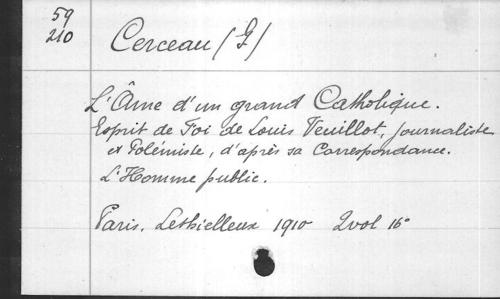 59
210
Cerceau (G)
L'Âme d'un grand Catholique.
Esprit de Foi de Louis Veuillot, journaliste
et Polémiste, d'après sa Correspondance.
L'Homme public.
Paris. Lethielleux 1910 2 vol 16°